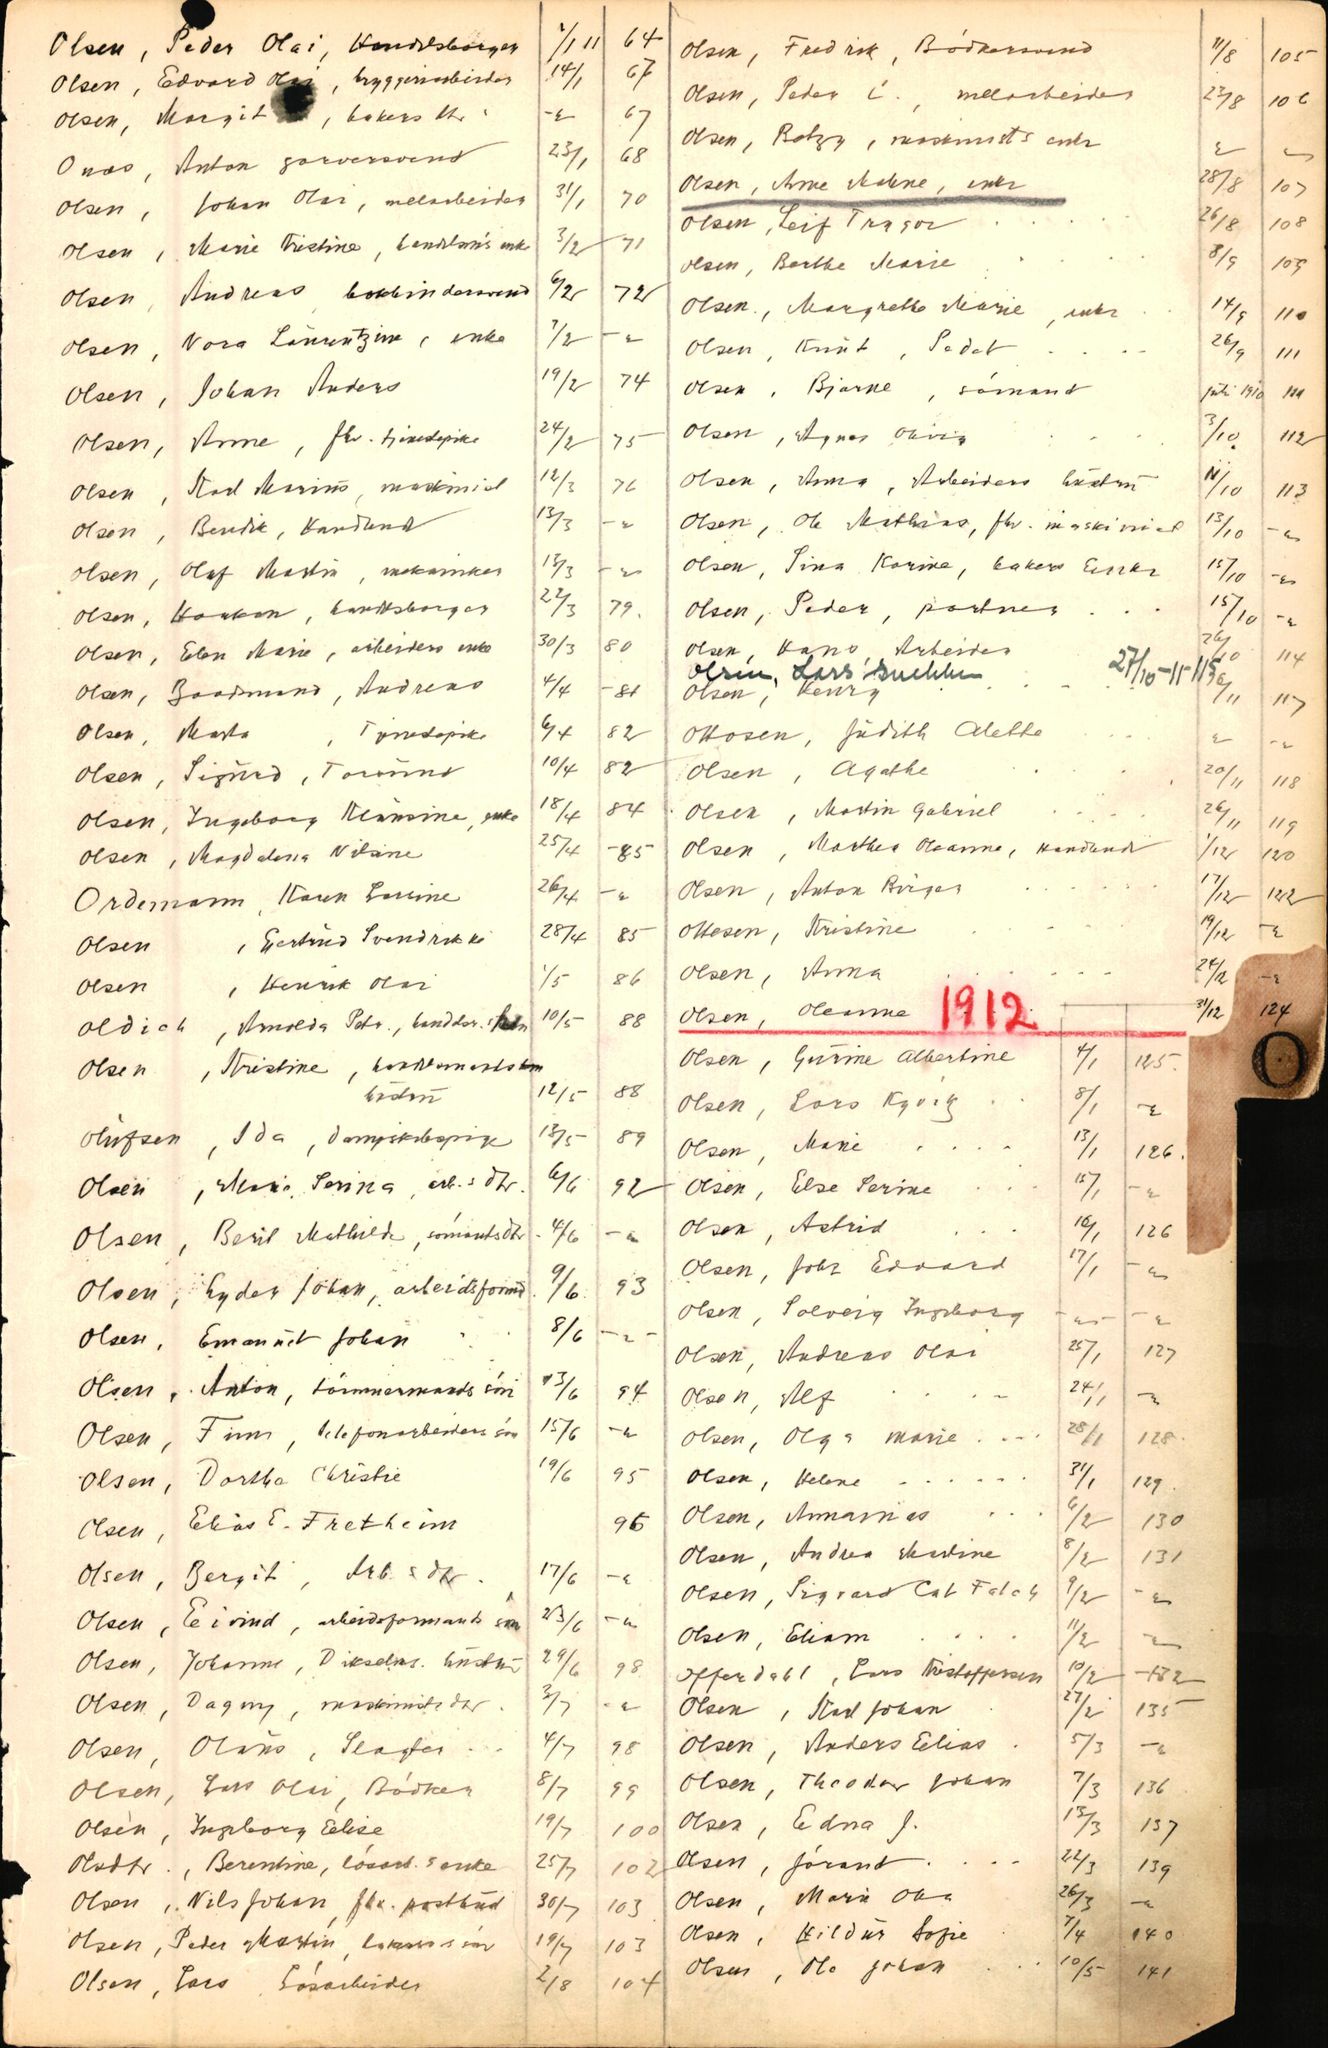 Olsen, Peder Olai, Handelsborger 7/1 11 64
Olsen, Edvard Olai, bryggeriarbeider 14/1 67
Olsen, Margit, bakers dtr. -"- 67
Onas, Anton garversvend 23/1 68
Olsen, Johan Olai, mélarbeider 31/1 70
Olsen, Marie Kristine, handelsm's enke 3/2 71
Olsen, Andreas bokbindersvend 6/2 72
Olsen, Nora Laurentzine, enke 7/2 -"-
Olsen, Johan Anders 19/2 74
Olsen, Anne, fhv. tjenestepike 24/2 75
Olsen, Karl Marius, maskinist 12/3 76
Olsen, Bendik, Handlende 13/3 -"-
Olsen, Olaf Martin, mekaniker 13/3 -"-
Olsen, Haakon, handelsborger 22/3 79.
Olsen, Elen Marie, arbeiders enke 30/3 80
Olsen, Baardmand, Andreas 4/4 -81
Olsen, Marta, Tjenestepike 6/4 82
Olsen, Sigurd, 10/4 82
Olsen, Ingeborg Klausine, enke 18/4 84
Olsen, Magdalena Nilsine 25/4 -85
Ordemann, Karen Lovine 26/4 -"-
Olsen, Gjertrud Svendrikke 28/4 85
Olsen, Henrik Olai 1/5 86
Oldich, Arnolda Petr., 10/5 88
Olsen, Kristine,
hustru 12/5 88
Olufsen, Ida, 13/5 89
Olsen, Marie Serina, arb.s dtr. 6/6 92
Olsen, Beril Mathilde, sömands dtr. 4/6 -"-
Olsen, Lyder Johan, arbeidsformd. 9/6 93
Olsen, Emanuel Johan 8/6 -"-
Olsen, Anton, tömmermands sön 13/6 94
Olsen, Finn, telefonarbeiders sön 15/6 -"-
Olsen, Dorthe Christie 19/6 95
Olsen, Elias E. Fretheim 96
Olsen, Bergit, Arb.s dtr. 17/6 -"-
Olsen, Eivind, arbeidsformands sön 23/6 -"-
Olsen, Johanne, hustru 29/6 98
Olsen, Dagny, maskinists dtr. 3/7 -"-
Olsen, Olaus, Slagter 4/7 98
Olsen, Lars Olai, Bödker 8/7 99
Olsen, Ingeborg Elise 19/7 100
Olsdtr., Berentine, lösarb.s enke 25/7 102
Olsen, Nils Johan, fhv. postbud 30/7 103
Olsen, Peder Martin, bakers sön 19/7 103
Olsen, Lars Lösarbeider 2/8 104
Olsen, Fredrik, Bödkersvend 11/8 105
Olsen, Peder E., mélarbeider 23/8 106
Olsen, Betzy, maskinists enke " "
Olsen, Anne Malene, enke 28/8 107
Olsen, Leif Trygve 26/8 108
Olsen, Berthe Marie 8/9 109
Olsen, Margrethe Marie, enke 14/9 110
Olsen, Knut, Sadet 26/9 111
Olsen, Bjarne, sömand juli 1910 111
Olsen, Agnes Olivia 3/10. 112
Olsen, Anna, Arbeiders hustru 11/10 113
Olsen, Ole Mathias, fhv. maskinist 13/10 -"-
Olsen, Sina Karine, bakers Enke 15/10 -"-
Olsen, Peder, partner 15/10 -"-
Olsen, Hans, Arbeider 26/10 114
Olsen, Lars 27/10-11-115
Olsen, Henry 117
Ottosen, Judith Alette " -"-
Olsen, Agathe 20/11 118
Olsen, Martin Gabriel 26/11 119
Olsen, Marthea Oleanne, Handlende 1/12 120
Olsen, Anton Birger 17/12 122
Ottesen, Kristine 19/12 -"-
Olsen, Anna 24/12 -"-
Olsen, Oleanne 31/12 124
1912
O
Olsen, Gurine Albertine 4/1 125
Olsen, Lars Kyvig 8/1 -"-
Olsen, Marie 13/1 126.
Olsen, Else Serine 15/1 -"-
Olsen, Astrid 16/1 126
Olsen, Johs Edvard 17/1 -"-
Olsen, Solveig Ingeborg -"- -"-
Olsen, Andreas Olai 25/1 127
Olsen, Alf 24/1 -"-
Olsen, Olga Marie 28/1 128.
Olsen, Helene 31/1 129
Olsen, Annanias 6/2 130
Olsen, Andrea Martine 8/2 131
Olsen, Sigvard Falch 9/2 -"-
Olsen, Eliam 11/2 -"-
Offerdahl, Lars Kristoffersen 10/2 -132
Olsen, Karl Johan 27/2 135
Olsen, Anders Elias 5/3 -"-
Olsen, Theodor Johan 7/3 136
Olsen, Edna J. 13/3 137
Olsen, Jörand 22/3 139
Olsen, Marie 26/3 -"-
Olsen, Hildur Sofie 7/4 140
Olsen, Ole Johan 10/5 141